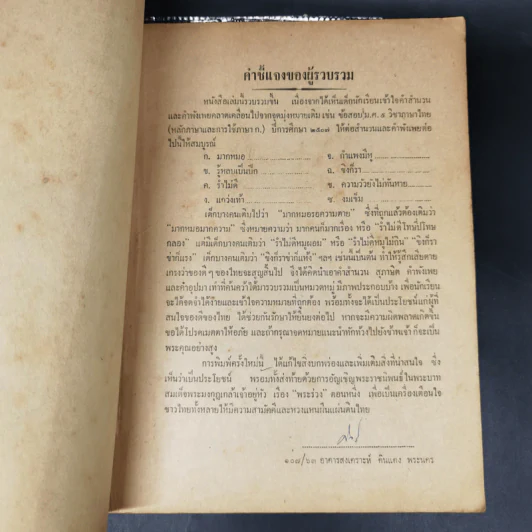 คำชี้แจงของผู้รวบรวม
หนังสือเล่มนี้รวบรวมขึ้น เนื่องจากได้เห็นเด็กนักเรียนเข้าใจคำสำนวน
และคำพังเพยคลาดเคลื่อนไปจากจุดมุ่งหมายเดิม เช่น ข้อสอบ ม.ศ. ๓ วิชาภาษาไทย
(หลักภาษาและการใช้ภาษา ก.) ปีการศึกษา ๒๕๐๗ ให้ต่อสำนวนและคำพังเพยต่อ
ไปนี้ให้สมบูรณ์
ก. มากหมอ จ. กำแพงมีหู
ข. รู้หลบเป็นปีก ฉ. ขิงก็รา
ค. รำไม่ดี ช. ความวัวยังไม่ทันหาย
ง. แกว่งเท้า ซ. งมเข็ม
เด็กบางคนเติมไปว่า "มากหมอรอความตาย" ซึ่งที่ถูกแล้วต้องเติมว่า
"มากหมอมากความ" ซึ่งหมายความว่า มากคนก็มากเรื่อง หรือ "รำไม่ดีโทษปี่โทษ
กลอง" แต่มีเด็กบางคนเติมว่า "รำไม่ดีหมูเมิน" หรือ "รำไม่ดีหมูไม่กิน" "ขิงก็รา
ข่าก็แรง" เด็กบางคนเติมว่า "ขิงก็ราข่าก็แห้ง" ฯลฯ เช่นนี้เป็นต้น ทำให้รู้สึกเสียดาย
เกรงว่าของดี ๆ ของไทยจะสูญสิ้นไป จึงได้คิดนำเอาคำสำนวน สุภาษิต คำพังเพย
และคำอุปมา เท่าที่ค้นคว้าได้มารวบรวมเป็นหมวดหมู่ มีภาพประกอบบ้าง เพื่อนักเรียน
จะได้จดจำได้ง่ายและเข้าใจความหมายที่ถูกต้อง พร้อมทั้งจะได้เป็นประโยชน์แก่ผู้ที่
สนใจของดีของไทย ได้ช่วยกันรักษาไว้ยั่งยืนต่อไป หากจะมีความผิดพลาดเกิดขึ้น
ขอได้โปรดเมตตาให้อภัย และถ้ากรุณาจดหมายแนะนำทักท้วงไปยังข้าพเจ้า ก็จะเป็น
พระคุณอย่างสูง
การพิมพ์ครั้งใหม่นี้ ได้แก้ไขสิ่งบกพร่องและเพิ่มเติมสิ่งที่น่าสนใจ ซึ่ง
เห็นว่าเป็นประโยชน์ พร้อมทั้งส่งท้ายด้วยการอัญเชิญพระราชนิพนธ์ในพระบาท
สมเด็จพระมงกุฎเกล้าเจ้าอยู่หัว เรื่อง "พระร่วง" ตอนหนึ่ง เพื่อเป็นเครื่องเตือนใจ
ชาวไทยทั้งหลายให้มีความสามัคคีและหวงแหนผืนแผ่นดินไทย
๑๐๘/๖๓ อาคารสงเคราะห์ ดินแดง พระนคร